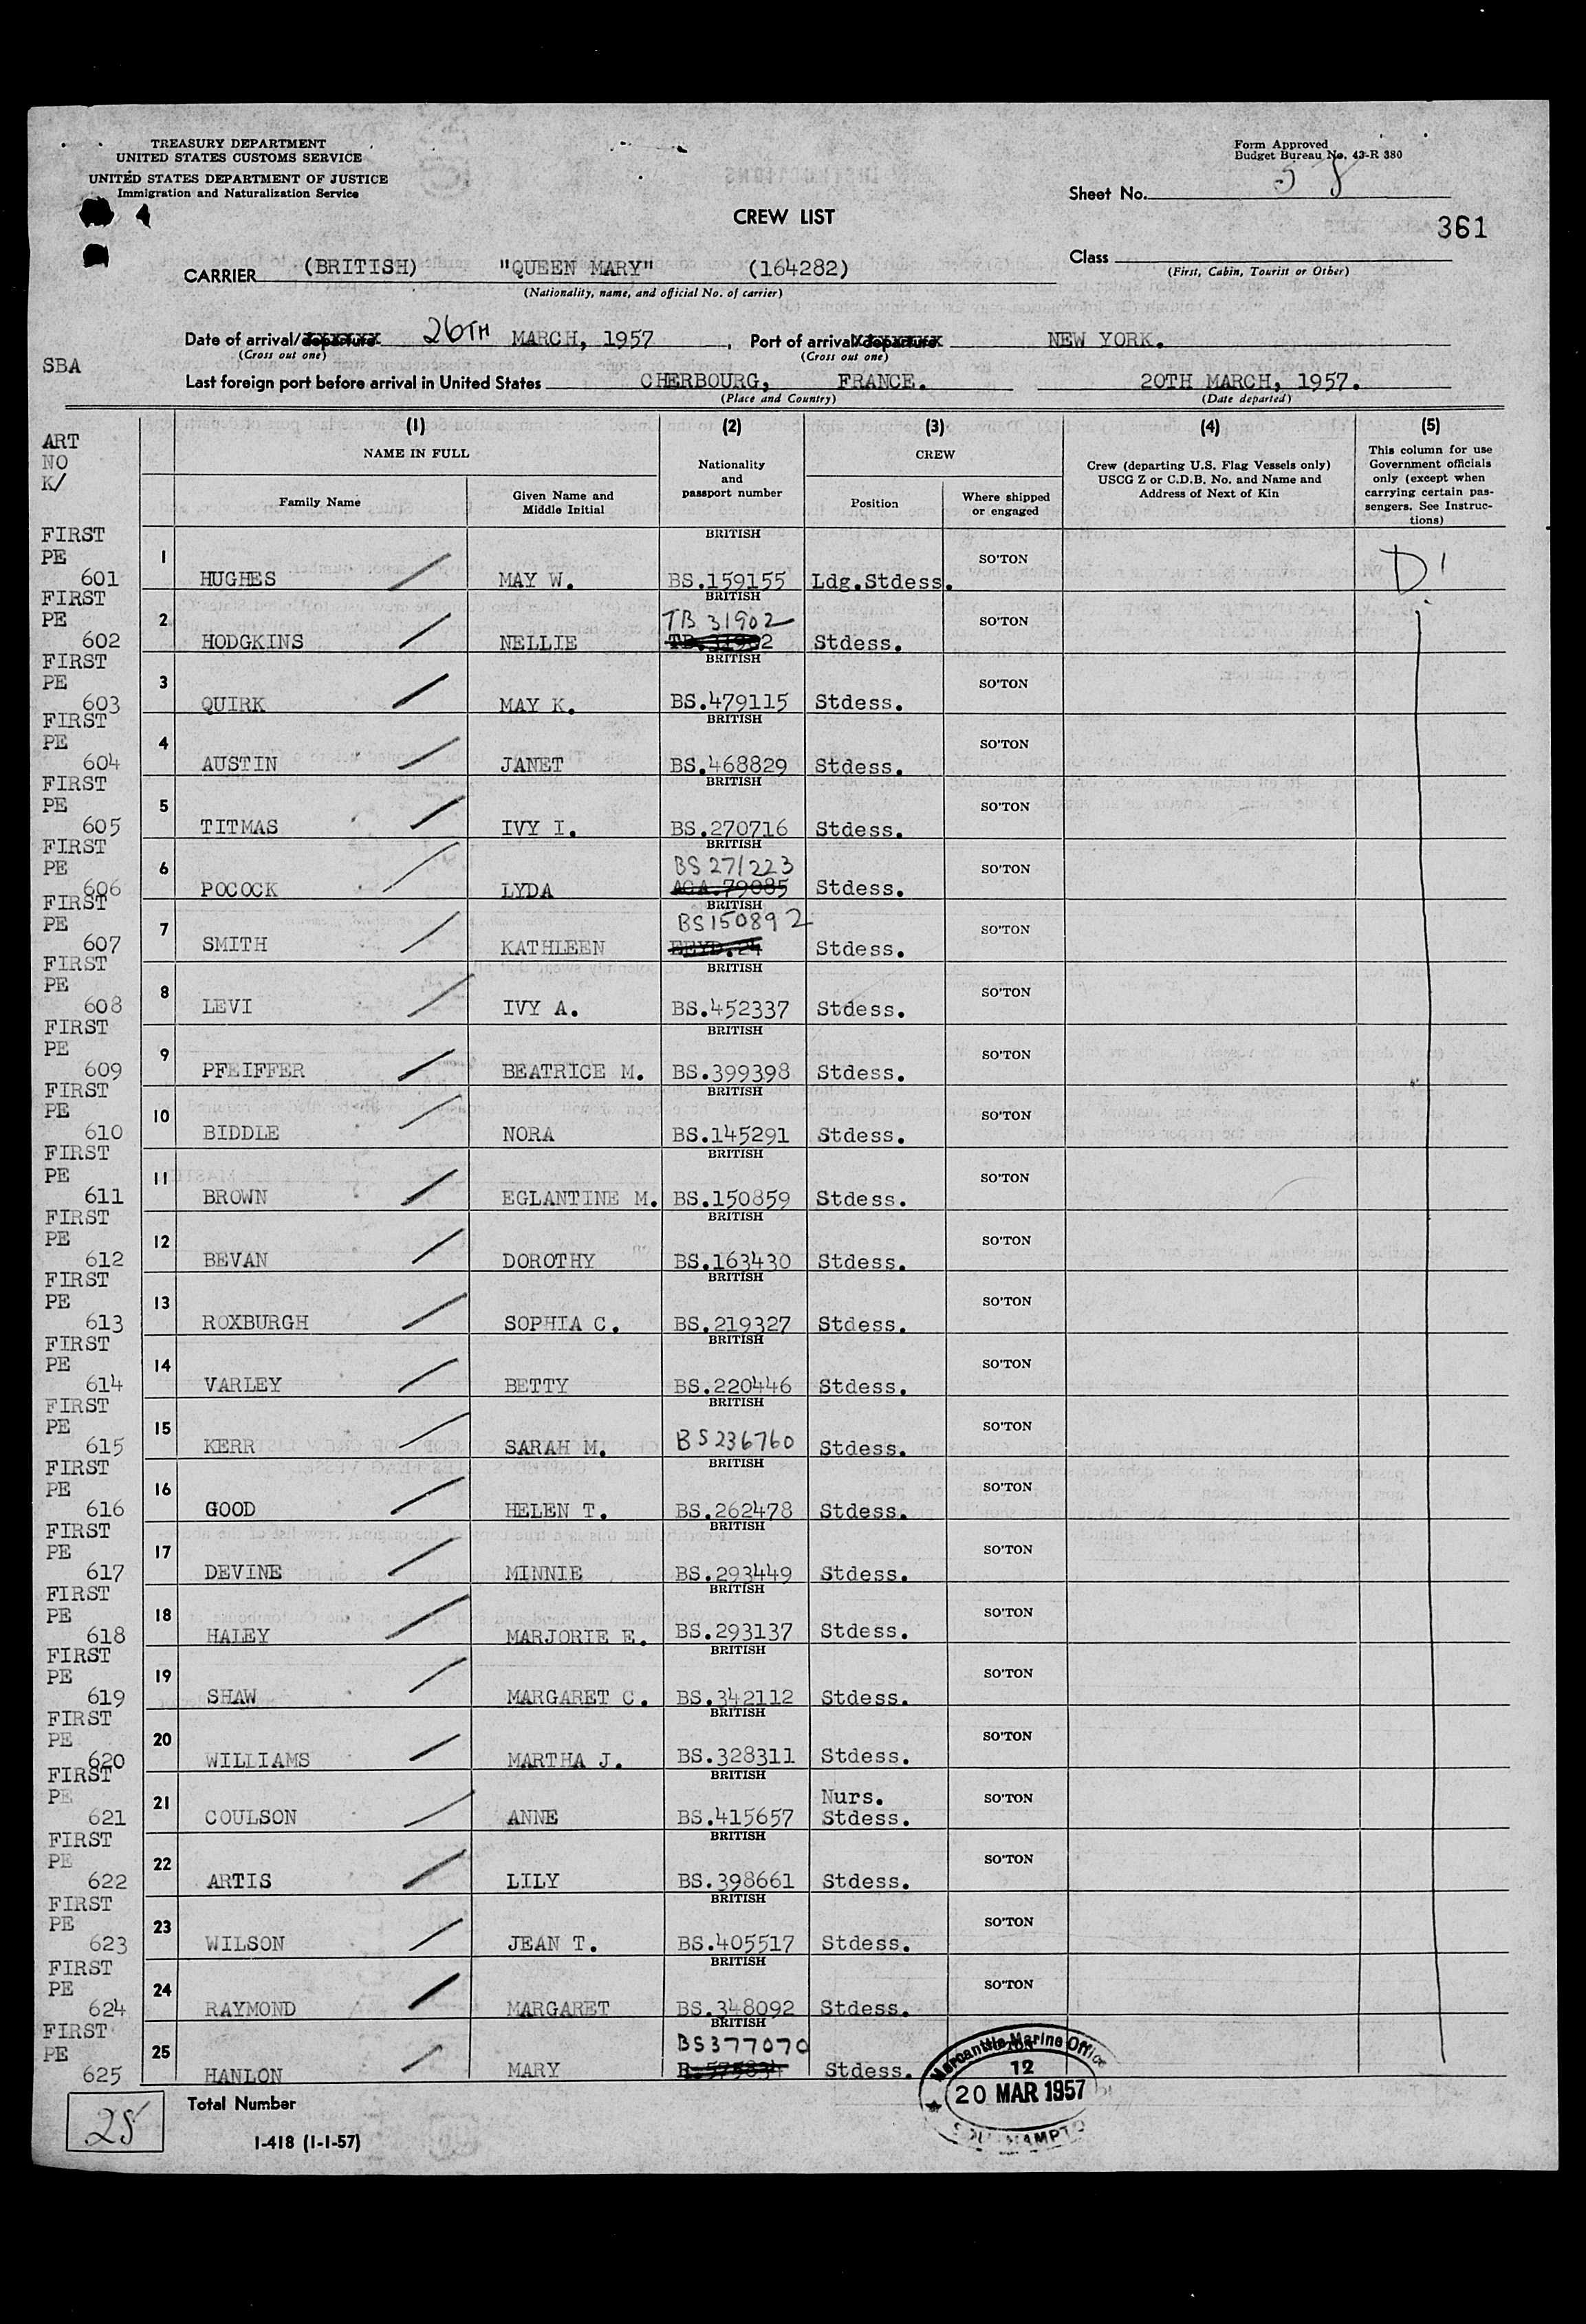 TREASURY DEPARTMENT
UNITED STATES CUSTOMS SERVICE
UNITED STATES DEPARTMENT OF JUSTICE
Immigration and Naturalization Service
Form Approved
Budget Bureau No. 43-R 380
Sheet No. 58
CREW LIST
361
CARRIER (BRITISH) "QUEEN MARY" (164282)
(Nationality, name, and official No. of carrier)
Class
(First, Cabin, Tourist or Other)
Date of arrival/departure 26TH MARCH, 1957, Port of arrival/departure NEW YORK.
(Cross out one) (Cross out one)
SBA
Last foreign port before arrival in United States CHERBOURG, FRANCE. 20TH MARCH, 1957.
(Place and Country) (Date departed)
ART
NO
K/
(1) (2) (3) (4) (5)
NAME IN FULL
Family Name
Given Name and
Middle Initial
Nationality
and
passport number
CREW
Position
Where shipped
or engaged
Crew (departing U.S. Flag Vessels only)
USCG Z or C.D.B. No. and Name and
Address of Next of Kin
This column for use
Government officials
only (except when
carrying certain pas-
sengers. See Instruc-
tions)
FIRST BRITISH
PE 1 SO'TON D
601 HUGHES MAY W. BS.159155 Ldg.Stdess.
FIRST BRITISH
PE 2 TB 31902 SO'TON
602 HODGKINS NELLIE TB.31902 Stdess.
FIRST BRITISH
PE 3 SO'TON
603 QUIRK MAY K. BS.479115 Stdess.
FIRST BRITISH
PE 4 SO'TON
604 AUSTIN JANET BS.468829 Stdess.
FIRST BRITISH
PE 5 SO'TON
605 TITMAS IVY I. BS.270716 Stdess.
FIRST BRITISH
PE 6 BS 271223 SO'TON
606 POCOCK LYDA AOA.79085 Stdess.
FIRST BRITISH
PE 7 BS150892 SO'TON
607 SMITH KATHLEEN Stdess.
FIRST BRITISH
PE 8 SO'TON
608 LEVI IVY A. BS.452337 Stdess.
FIRST BRITISH
PE 9 SO'TON
609 PFEIFFER BEATRICE M. BS.399398 Stdess.
FIRST BRITISH
PE 10 SO'TON
610 BIDDLE NORA BS.145291 Stdess.
FIRST BRITISH
PE 11 SO'TON
611 BROWN EGLANTINE M. BS.150859 Stdess.
FIRST BRITISH
PE 12 SO'TON
612 BEVAN DOROTHY BS.163430 Stdess.
FIRST BRITISH
PE 13 SO'TON
613 ROXBURGH SOPHIA C. BS.219327 Stdess.
FIRST BRITISH
PE 14 SO'TON
614 VARLEY BETTY BS.220446 Stdess.
FIRST BRITISH
PE 15 SO'TON
615 KERR SARAH M. BS236760 Stdess.
FIRST BRITISH
PE 16 SO'TON
616 GOOD HELEN T. BS.262478 Stdess.
FIRST BRITISH
PE 17 SO'TON
617 DEVINE MINNIE BS.293449 Stdess.
FIRST BRITISH
PE 18 SO'TON
618 HALEY MARJORIE E. BS.293137 Stdess.
FIRST BRITISH
PE 19 SO'TON
619 SHAW MARGARET C. BS.342112 Stdess.
FIRST BRITISH
PE 20 SO'TON
620 WILLIAMS MARTHA J. BS.328311 Stdess.
FIRST BRITISH
PE 21 Nurs. SO'TON
621 COULSON ANNE BS.415657 Stdess.
FIRST BRITISH
PE 22 SO'TON
622 ARTIS LILY BS.398661 Stdess.
FIRST BRITISH
PE 23 SO'TON
623 WILSON JEAN T. BS.405517 Stdess.
FIRST BRITISH
PE 24 SO'TON
624 RAYMOND MARGARET BS.348092 Stdess.
FIRST BRITISH
PE 25 BS377070
625 HANLON MARY R.575834 Stdess.
Mercantile Marine Office
12
20 MAR 1957
SOUTHAMPTO
25 Total Number
I-418 (1-1-57)